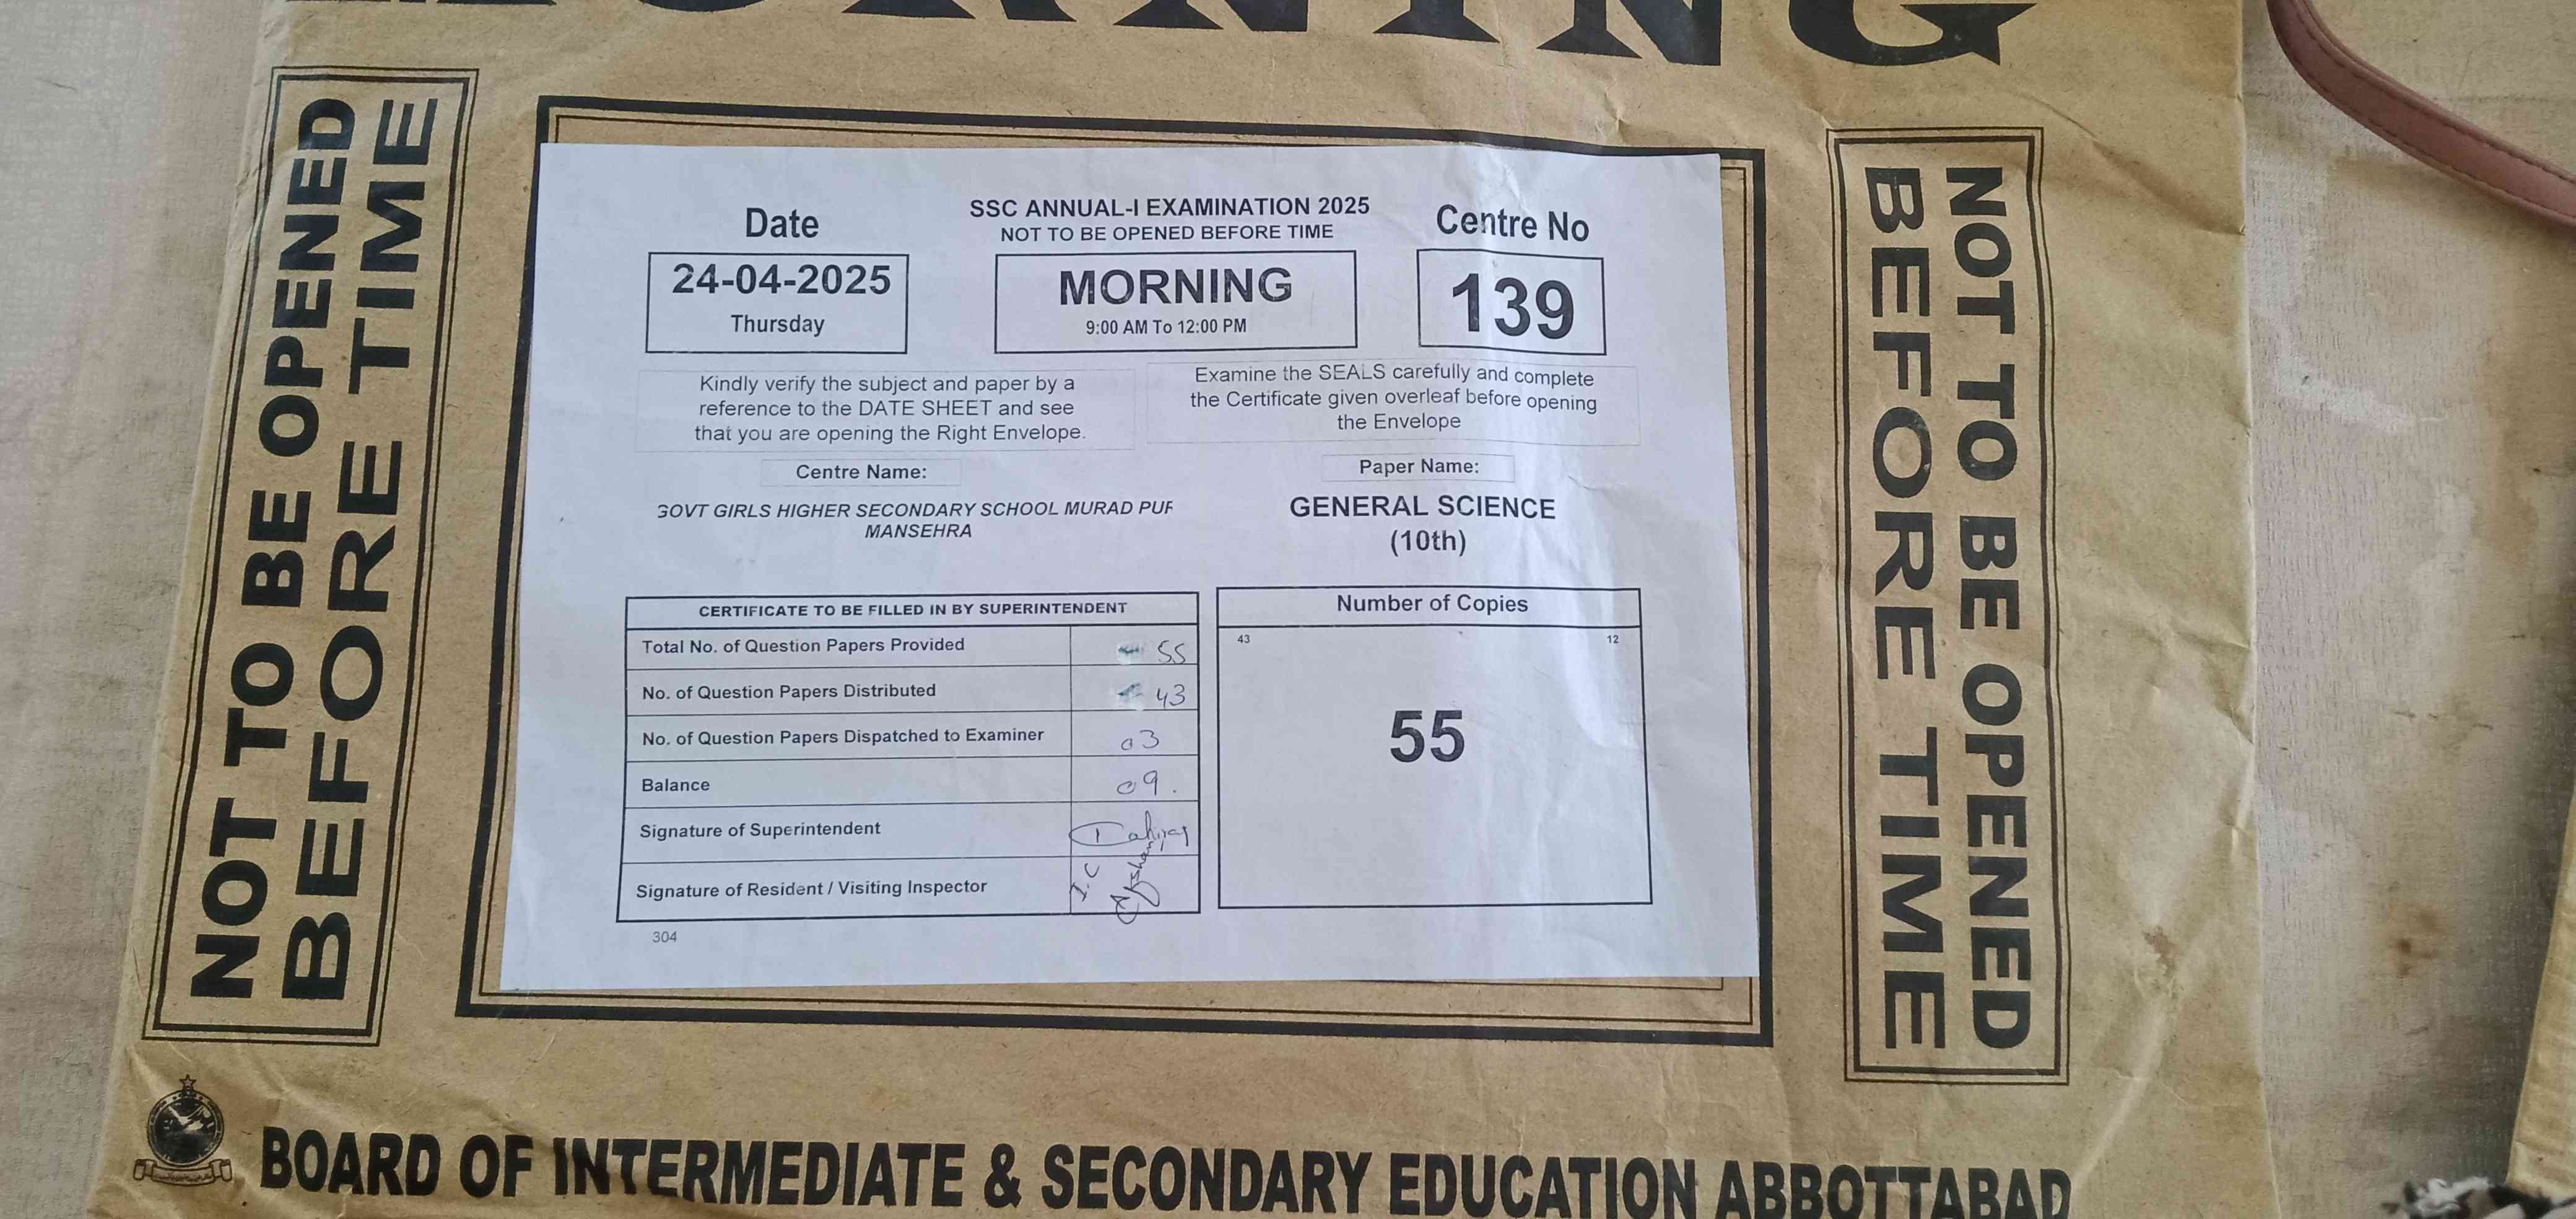 NOT TO BE OPENED
BEFORE TIME
SSC ANNUAL-I EXAMINATION 2025
NOT TO BE OPENED BEFORE TIME
Date
24-04-2025
Thursday
MORNING
9:00 AM To 12:00 PM
Centre No
139
Kindly verify the subject and paper by a
reference to the DATE SHEET and see
that you are opening the Right Envelope.
Examine the SEALS carefully and complete
the Certificate given overleaf before opening
the Envelope
Centre Name:
GOVT GIRLS HIGHER SECONDARY SCHOOL MURAD PUR
MANSEHRA
Paper Name:
GENERAL SCIENCE
(10th)
CERTIFICATE TO BE FILLED IN BY SUPERINTENDENT
Total No. of Question Papers Provided 55
No. of Question Papers Distributed 43
No. of Question Papers Dispatched to Examiner 03
Balance 09.
Signature of Superintendent
Signature of Resident / Visiting Inspector
304
Number of Copies
43 12
55
NOT TO BE OPENED
BEFORE TIME
BOARD OF INTERMEDIATE & SECONDARY EDUCATION ABBOTTABAD